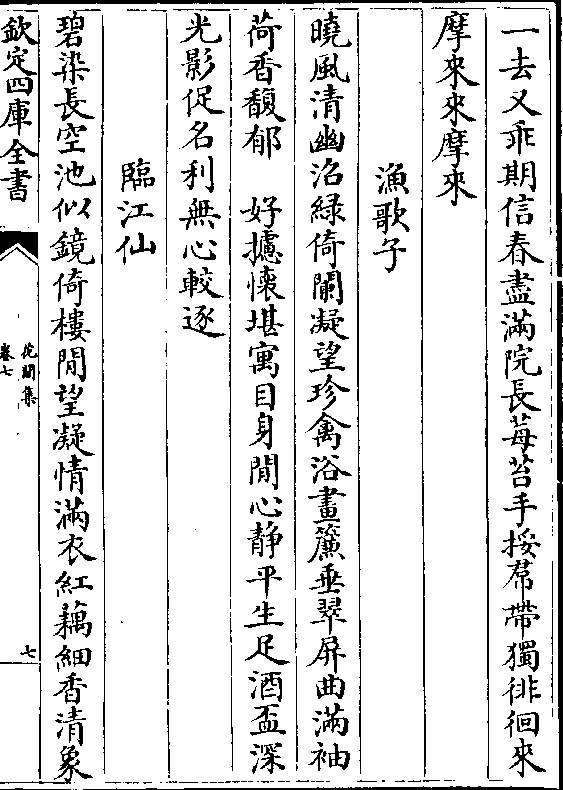 一去又乖期信春盡滿院長莓苔手挼帬帶獨徘徊來
摩來來摩來
漁歌子
曉風清幽沼緑倚闌凝望珍禽浴畫簾垂翠屏曲滿袖
荷香馥郁　好攄懷堪寓目身閒心静平生足酒盃深
光影促名利無心較逐
臨江仙
碧染長空池似鏡倚樓閒望凝情滿衣紅藕細香清象
欽定四庫全書
花間集
卷七
七